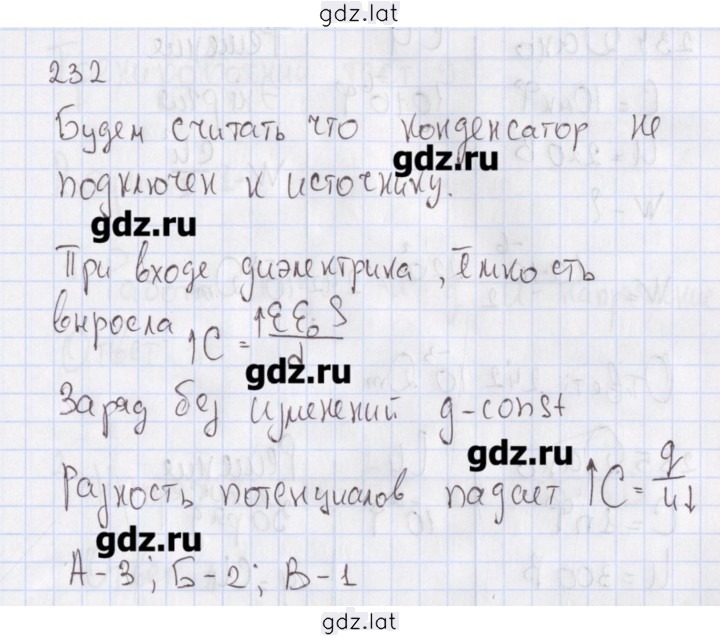 gdz.lat
232
Будем считать что конденсатор не
gdz.ru
подключен к источнику.
gdz.ru
При входе диэлектрика, ёмкость
выросла ↑C = ↑εε₀S / d
gdz.ru
Заряд без изменений q-const
gdz.ru
Разность потенциалов падает ↑C = q / u↓
gdz.ru
А-3; Б-2; В-1
gdz.lat